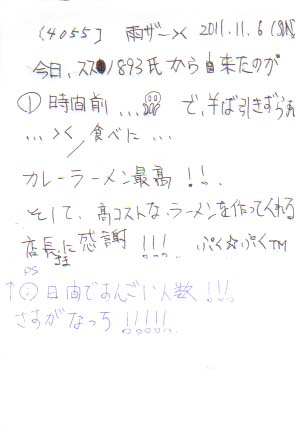 (4055] 雨ザーX 2011.11.6 (SUN)
今日、スス1893氏から来たのが
① 時間前 ... で、そば引きずられ
...>く 食べに ...
カレーラーメン最高 !!.
そして、高コストな、ラーメンを作ってくれる
店長に感謝 !!! ぷく☆ぷくTM
PS
↑ 日間であんごい人数 !!!
さすがなっち !!!!!